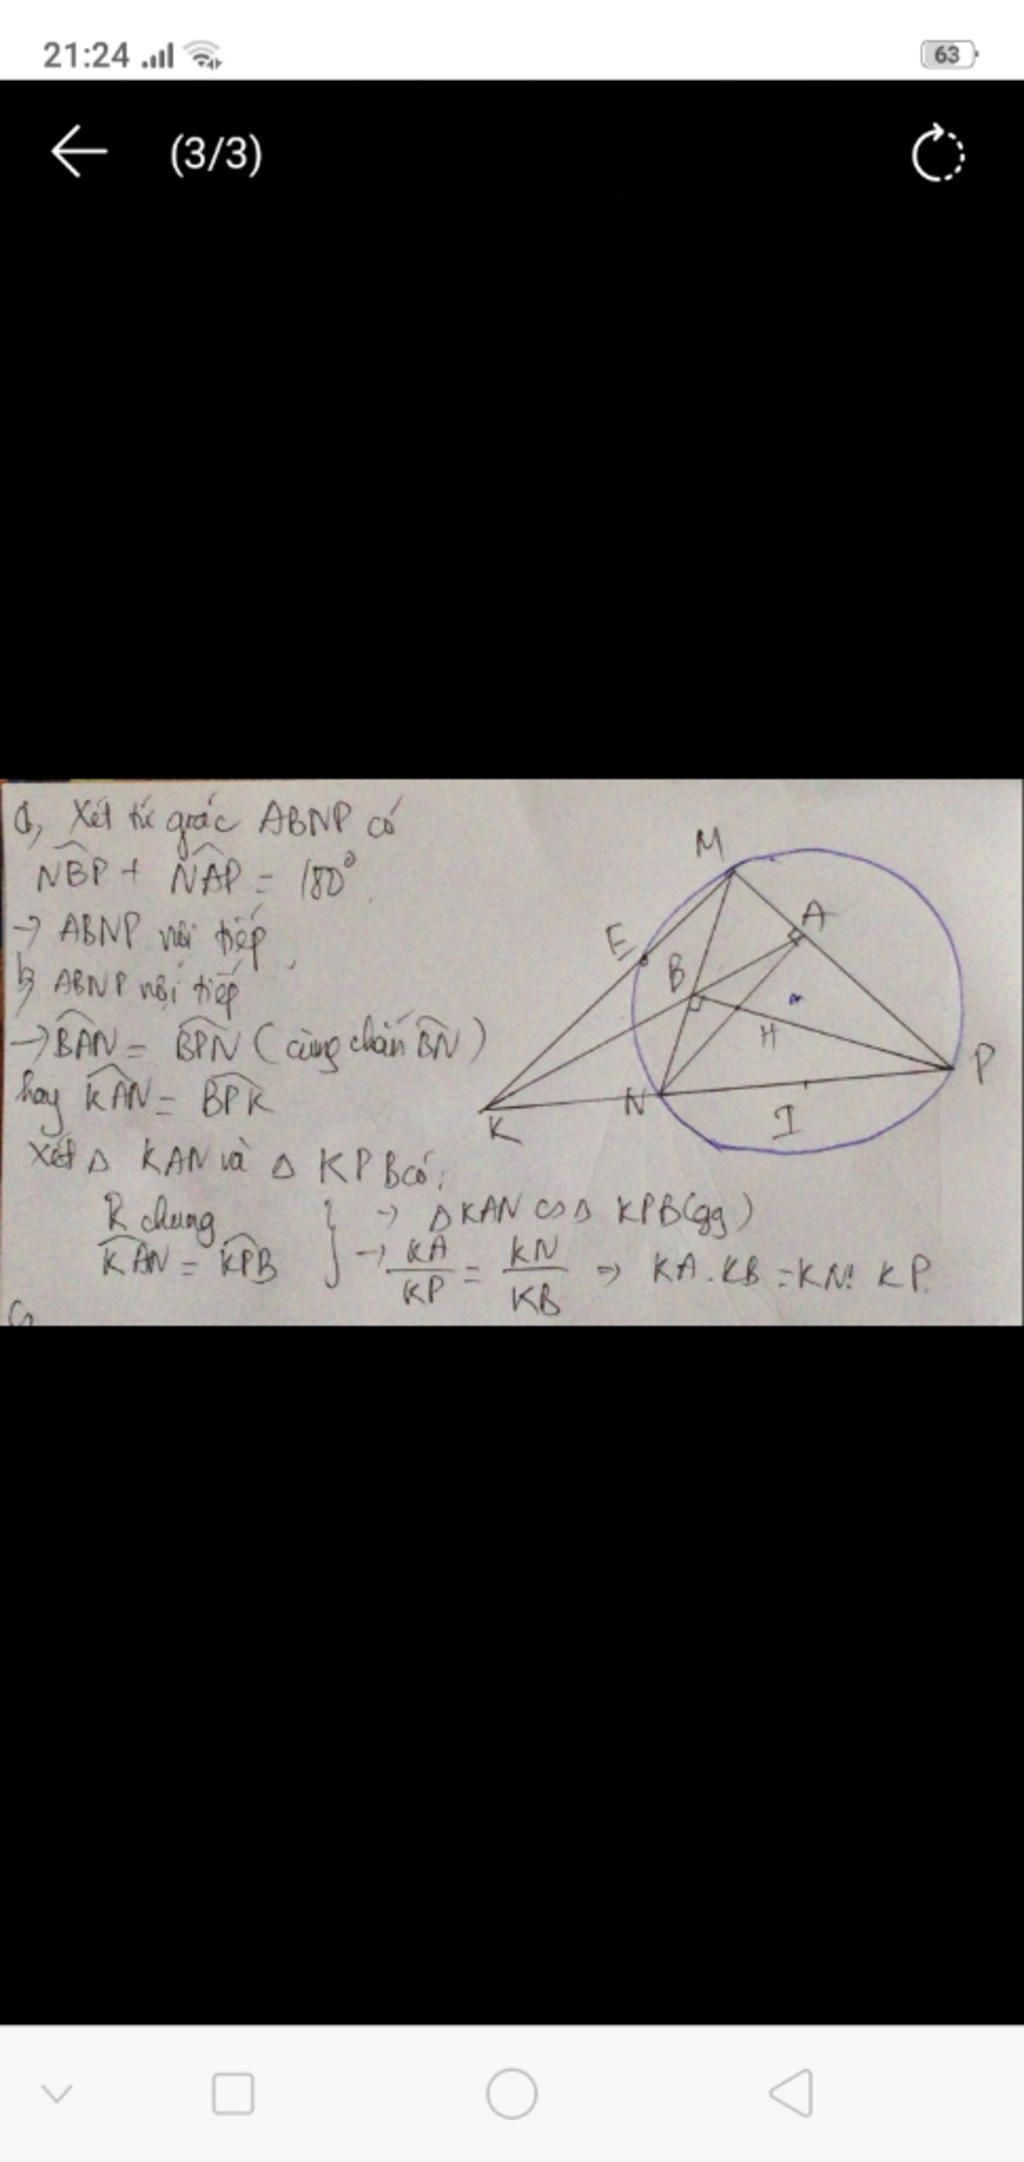 21:24
63
(3/3)
a, Xét tứ giác ABNP có
NBP + NAP = 180°
→ ABNP nội tiếp
b, ABNP nội tiếp
→ BAN = BPN (cùng chắn BN)
hay KAN = BPK
Xét △ KAN và △ KPB có:
K chung
KAN = KPB
} → △KAN ∽ △ KPB(gg)
→ KA/KP = KN/KB ⇒ KA.KB = KN. KP.
M
A
E
B
H
P
K
N
I